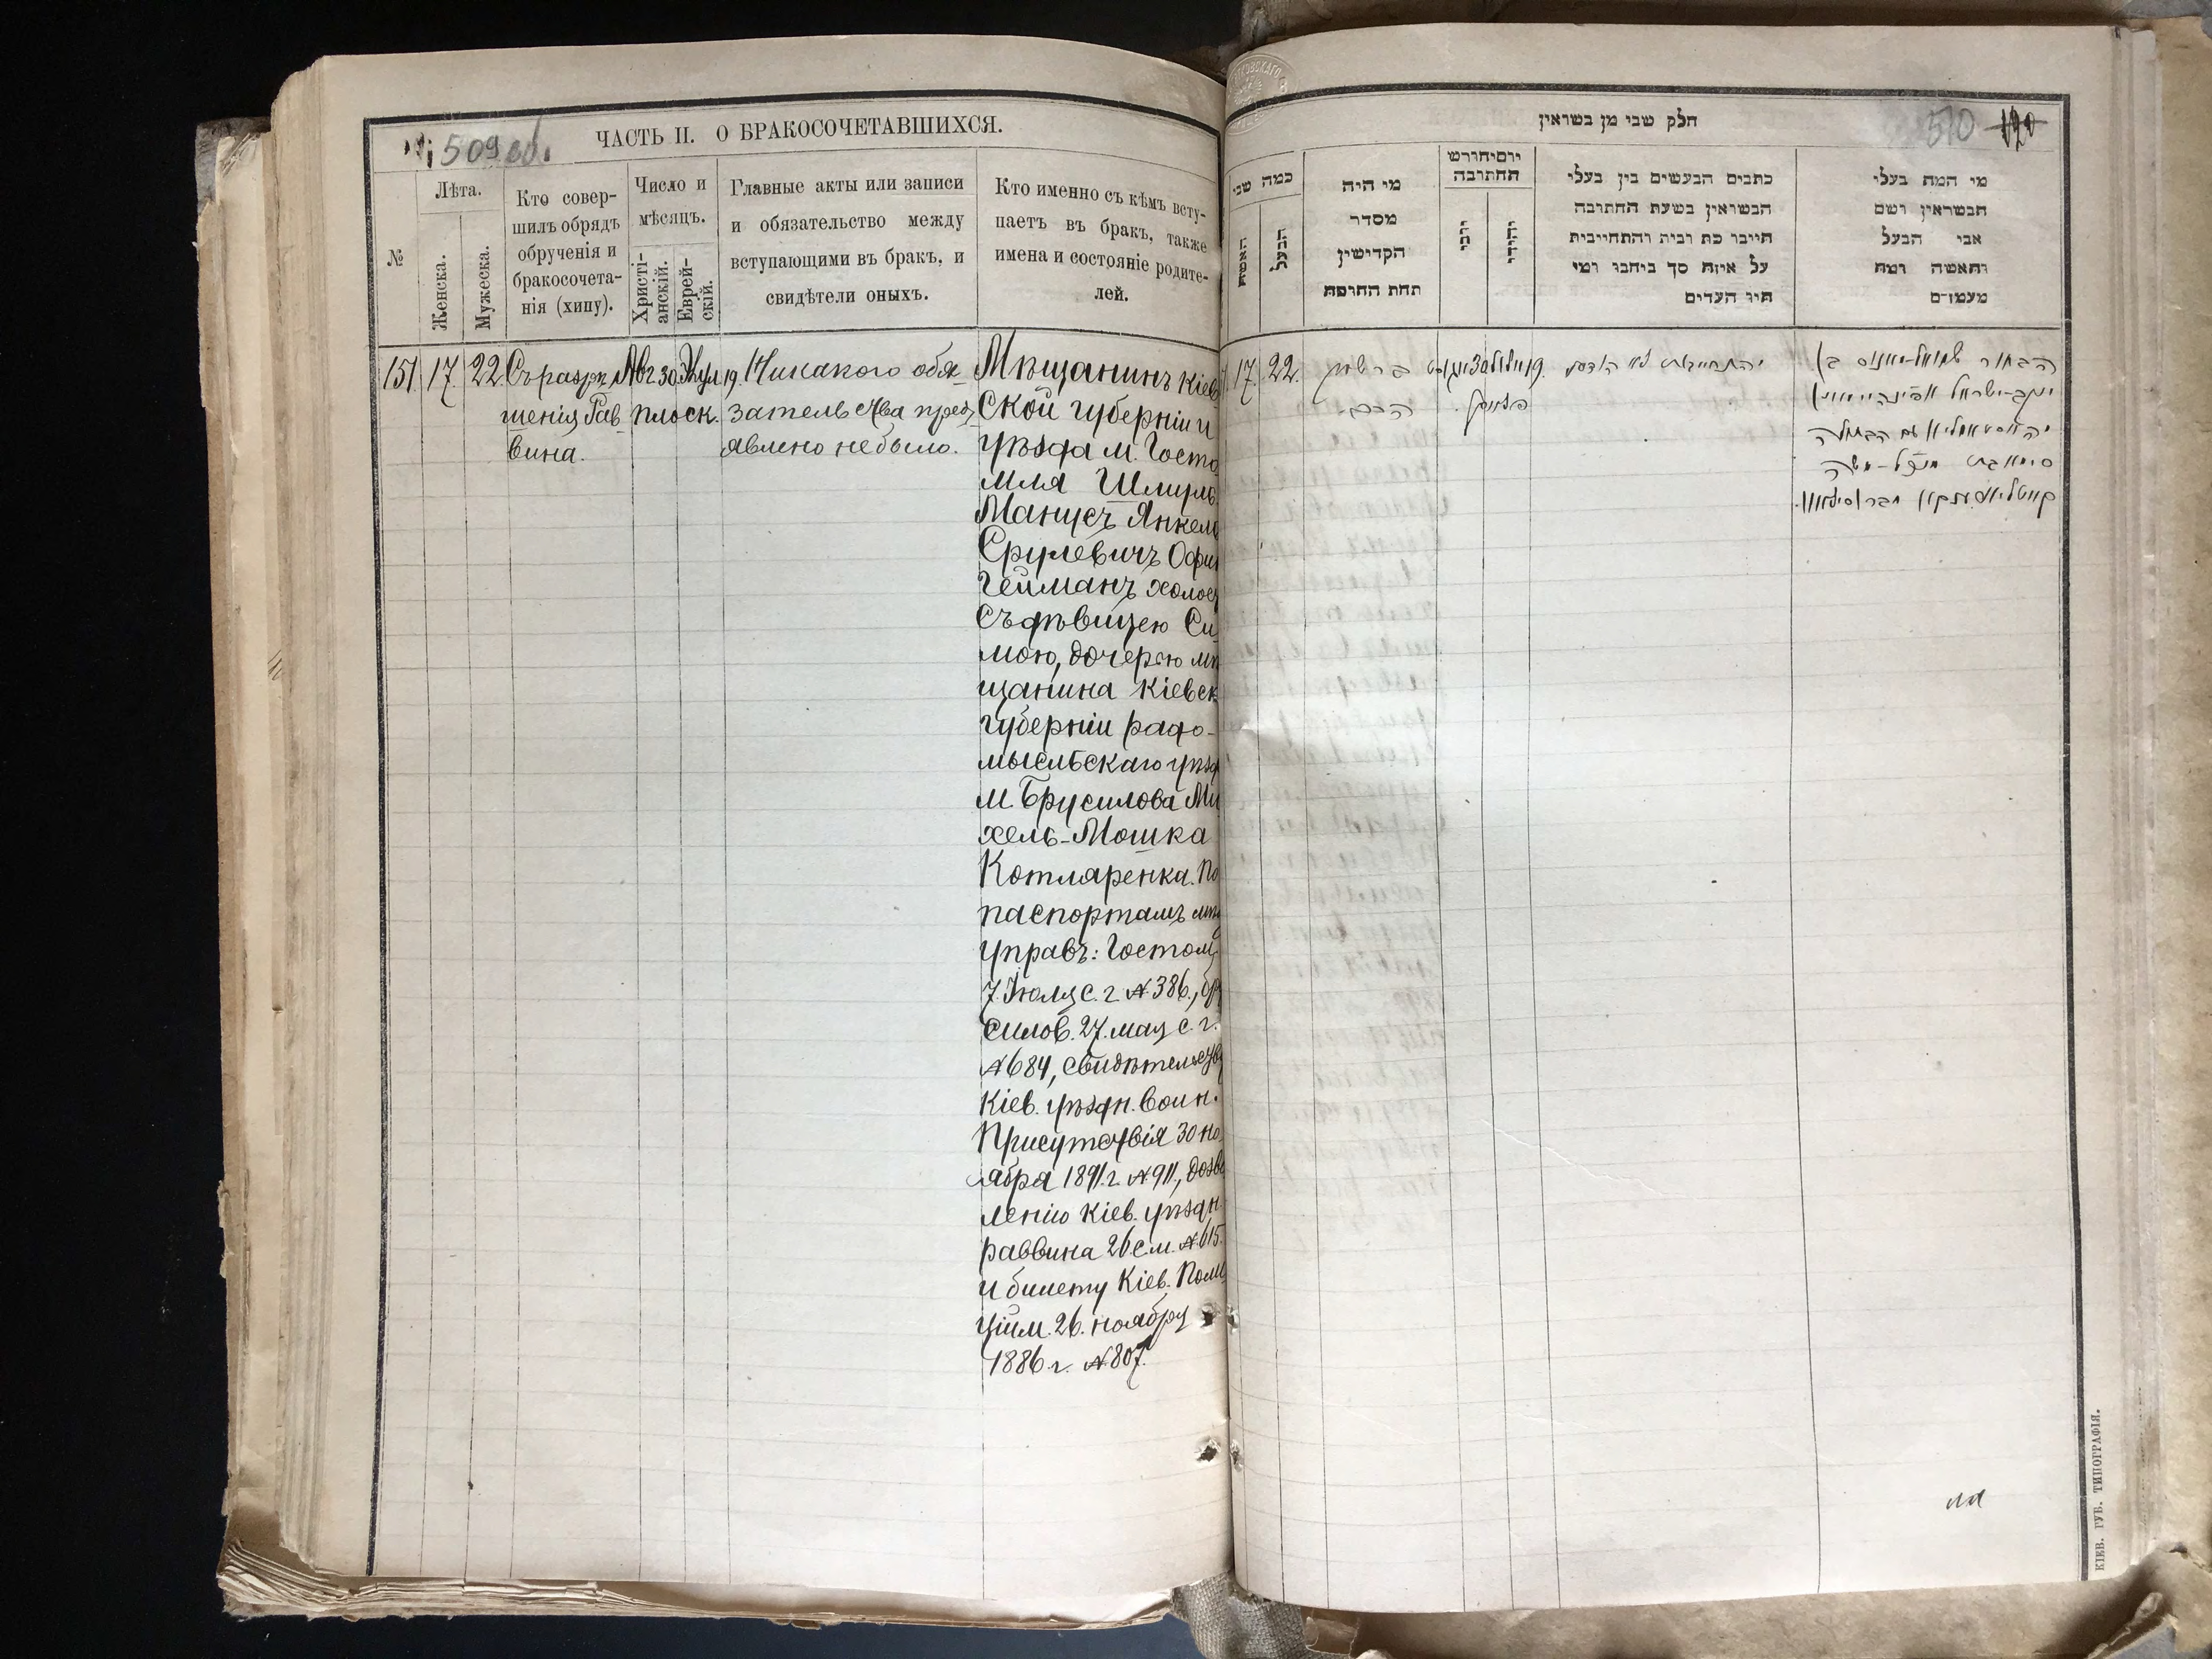 509 об.
ЧАСТЬ II. О БРАКОСОЧЕТАВШИХСЯ.
№
Лѣта.
Женска.
Мужеска.
Кто совер-
шилъ обрядъ
обрученія и
бракосочета-
нія (хипу).
Число и
мѣсяцъ.
Христі-
анскій.
Еврей-
скій.
Главные акты или записи
и обязательство между
вступающими въ бракъ, и
свидѣтели оныхъ.
Кто именно съ кѣмъ всту-
паетъ въ бракъ, также
имена и состояніе родите-
лей.
151. 17. 22. Съ разрѣ
шенія Рав
вина.
Авг 30 Элул 19.
плоск.
Никакого обя-
зательства пред
явлено не было.
Мѣщанинъ Кіев
ской губерніи и
уѣзда м. Госто
мля Шмуль
Манусъ Янкель
Срулевичъ Офин
гейманъ холос
съ дѣвицею Си
мою, дочерью мѣ
щанина Кіевск
губерніи радо-
мысльскаго уѣзд
м. Брусилова Ми
хель-Мошка
Котляренка. По
паспортамъ мѣщ
управъ: Гостом
7. Іюля с. г. № 386., бру
силов. 27. мая с. г.
№ 684, свидѣтельству
Кіев. уѣздн. воин.
Присутствія 30 но
ября 1891 г. № 911, дозво
ленію Кіев. уѣздн.
раввина 26 с. м. № 615.
и билету Кіев. Поли
ціи м. 26. ноября
1886 г. № 807.
חלק שני מן נשואין
510 120
כמה שני
האשה
הבעל
מי היה
מסדר
הקדישין
תחת החופה
יום יחורש
החתובה
כתבים הנעשים בין בעלי
הנשואין בשעת החתובה
היינו כת ובית והתחייבית
על איזה סך ביחבו ומי
היו העדים
מי המה בעלי
הנשואין ושם
אבי הבעל
והאשה ומה
מעמדם
17. 22.
הרב.
30
19.
הבחור שמואל-מאנוס בן
יעקב-ישראל
עם הבתולה
מיכל-משה
КІЕВ. ГУБ. ТИПОГРАФІЯ.